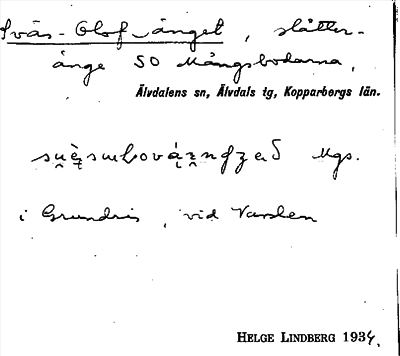 Sväs-Olof-änget, slåtter-
änge SO Mångsbodarna,
Älvdalens sn, Älvdals tg, Kopparbergs län.
Mgs.
i Grundris, vid Vasslen
HELGE LINDBERG 1934.